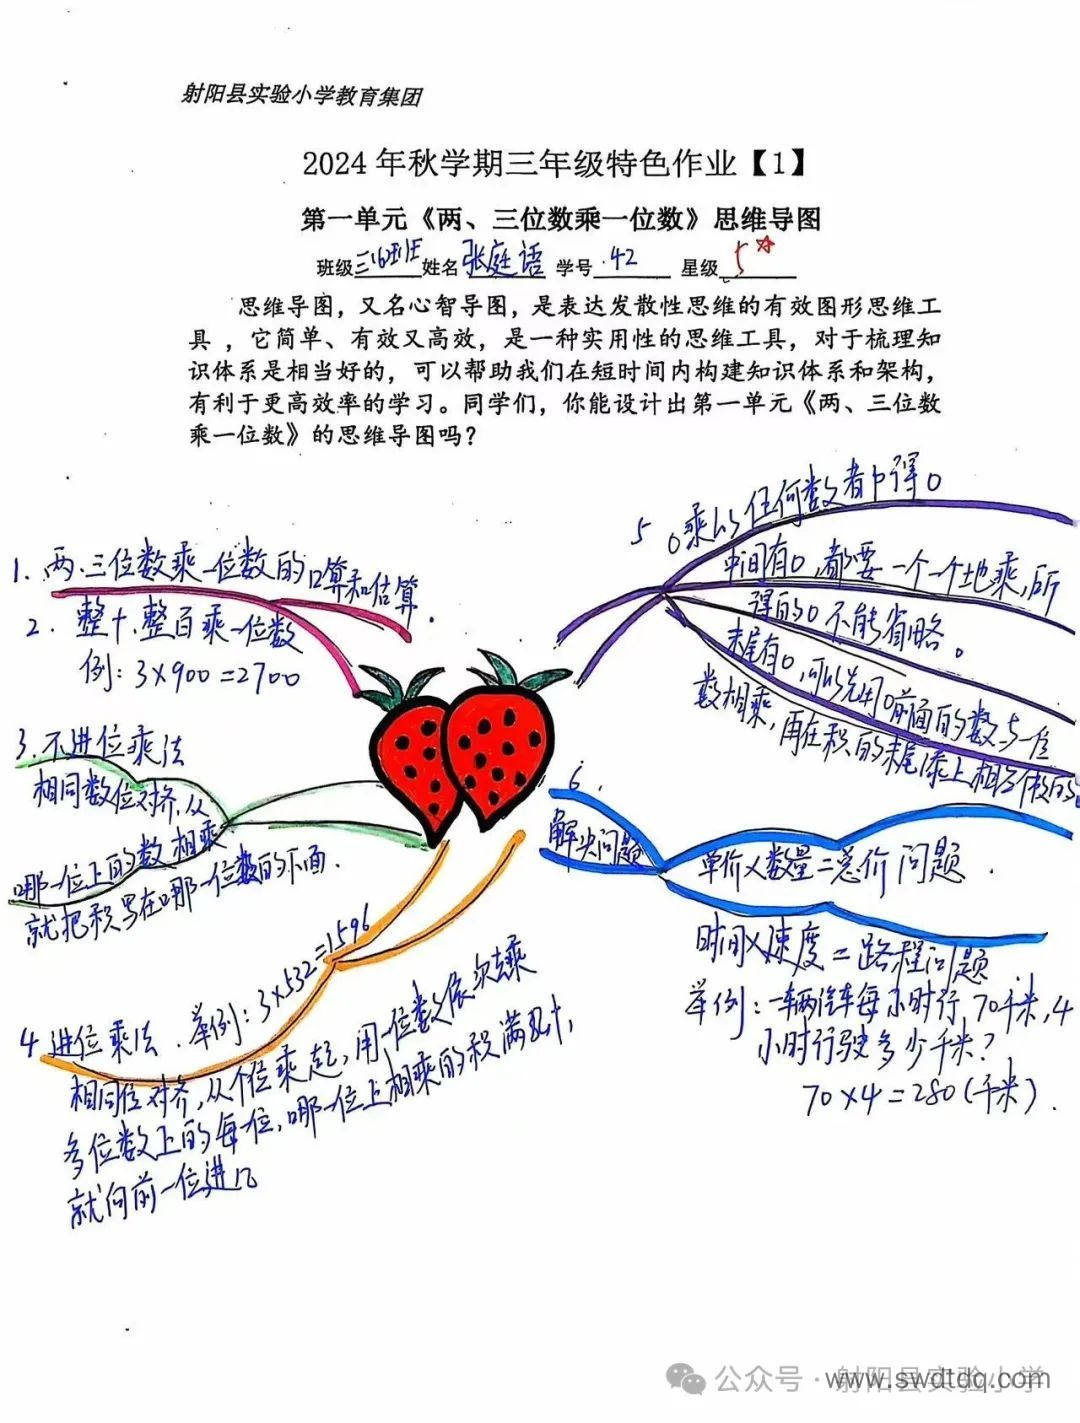 射阳县实验小学教育集团
2024年秋学期三年级特色作业【1】
第一单元《两、三位数乘一位数》思维导图
班级三(6)班 姓名 张庭语 学号 42 星级 5☆
思维导图，又名心智导图，是表达发散性思维的有效图形思维工
具，它简单、有效又高效，是一种实用性的思维工具，对于梳理知
识体系是相当好的，可以帮助我们在短时间内构建知识体系和架构，
有利于更高效率的学习。同学们，你能设计出第一单元《两、三位数
乘一位数》的思维导图吗？
1、两、三位数乘一位数的口算和估算.
2、整十、整百乘一位数
例：3×900=2700
3、不进位乘法
相同数位对齐，从
哪一位上的数相乘
就把积写在哪一位数的下面.
4 进位乘法. 举例：3×532=1596
相同位对齐，从个位乘起，用一位数依次去乘
多位数上的每一位，哪一位上相乘的积满几十，
就向前一位进几
5 0乘以任何数都得0
中间有0，都要一个一个地乘，所
得的0不能省略。
末尾有0，可以先用0前面的数与一位
数相乘，再在积的末尾添上相同个数的0
6.
解决问题
单价×数量=总价问题.
时间×速度=路程问题.
举例：一辆汽车每小时行70千米，4
小时行驶多少千米？
70×4=280(千米).
公众号·射阳县实验小学
www.swdtdq.com